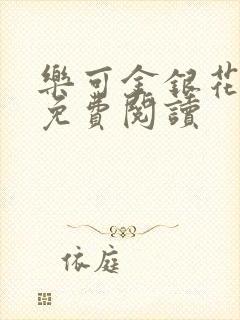 樂可金銀花
免費閱讀
依庭